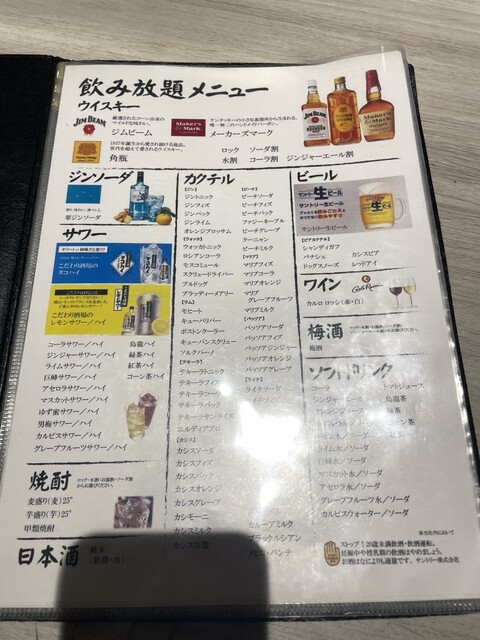 飲み放題メニュー
ウイスキー
JIM BEAM
ジムビーム
Maker's Mark
メーカーズマーク
角瓶
ロック ソーダ割
水割 コーラ割 ジンジャーエール割
ジンソーダ
翠ジンソーダ
サワー
こだわり酒場の
タコハイ
こだわり酒場の
レモンサワー／ハイ
コーラサワー／ハイ
ジンジャーサワー／ハイ
ライムサワー／ハイ
巨峰サワー／ハイ
アセロラサワー／ハイ
マスカットサワー／ハイ
ゆず蜜サワー／ハイ
男梅サワー／ハイ
カルピスサワー／ハイ
グレープフルーツサワー／ハイ
烏龍ハイ
緑茶ハイ
紅茶ハイ
コーン茶ハイ
焼酎
麦盛り(麦)25°
芋盛り(芋)25°
甲類焼酎
日本酒
カクテル
【ジン】
ジントニック
ジンフィズ
ジンバック
ジンライム
オレンジブロッサム
【ウォッカ】
ウォッカトニック
ロシアンコーラ
モスコミュール
スクリュードライバー
ブルドッグ
ブラッディーメアリー
【ラム】
モヒート
キューバリブレ
ボストンクーラー
キューバンスクリュー
ソルクバーノ
【テキーラ】
テキーラトニック
テキーラフィズ
テキーラコーラ
テキーラバック
テキーラサンライズ
【カシス】
カシスソーダ
カシスフィズ
カシスバック
カシスオレンジ
カシスグレープ
カシモーニ
カシスミルク
カシス烏龍
【ピーチ】
ピーチソーダ
ピーチフィズ
ピーチバック
ファジーネーブル
ピーチグレープ
クーニャン
ピーチミルク
【マリブ】
マリブフィズ
マリブコーラ
マリブオレンジ
マリブ
グレープフルーツ
マリブミルク
【パッソア】
パッソアソーダ
パッソアフィズ
パッソアジンジャー
パッソアオレンジ
パッソアグレープ
【ライチ】
ライチソーダ
カルーアミルク
ブラックルシアン
ビール
サントリー生ビール
サントリー生ビール
【ビアカクテル】
シャンディガフ
パナシェ
ドッグズノーズ
カシスビア
レッドアイ
ワイン
Carlo Rossi
カルロ ロッシ(赤・白)
梅酒
梅酒
ソフトドリンク
コーラ
ジンジャーエール
オレンジジュース
ライム水／ソーダ
巨峰水／ソーダ
マスカット水／ソーダ
アセロラ水／ソーダ
グレープフルーツ水／ソーダ
カルピスウォーター／ソーダ
トマトジュース
烏龍茶
緑茶
ストップ！20歳未満飲酒・飲酒運転。
妊娠中や授乳期の飲酒はやめましょう。
お酒はなによりも適量です。サントリー株式会社